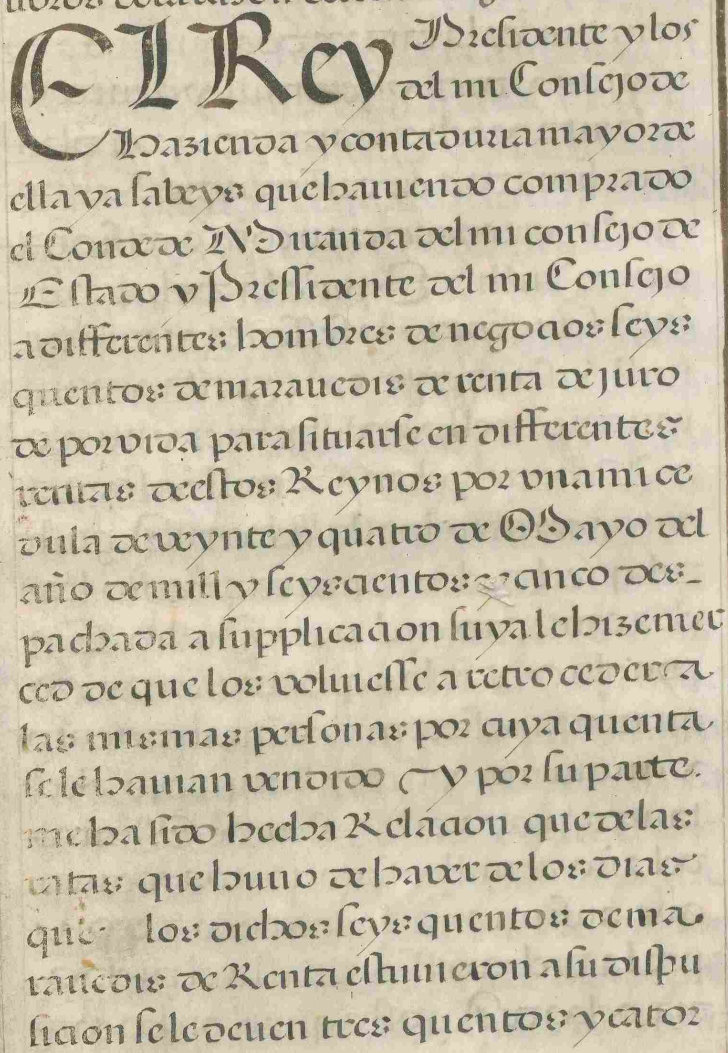 El Rey Presidente y los
del mi Consejo de
Hazienda y contaduria mayor de
ella ya sabeys que haviendo comprado
el Conde de Miranda del mi consejo de
Estado y Pressidente del mi Consejo
a differentes hombres de negocios seys
quentos de maravedis de renta de juro
de por vida para situarse en differentes
rentas de estos Reynos por una mi ce
dula de veynte y quatro de Mayo del
año de mill y seyscientos y cinco des_
pachada a supplicacion suya le hize mer
ced de que los volviesse a retroceder a
las mismas personas por cuya quenta
se le havian vendido y por su parte.
me ha sido hecha Relacion que de las
ratas que huvo de haver de los dias
que los dichos seys quentos de ma
ravedis de Renta estuvieron a su dispu
sicion se le deven tres quentos y cator